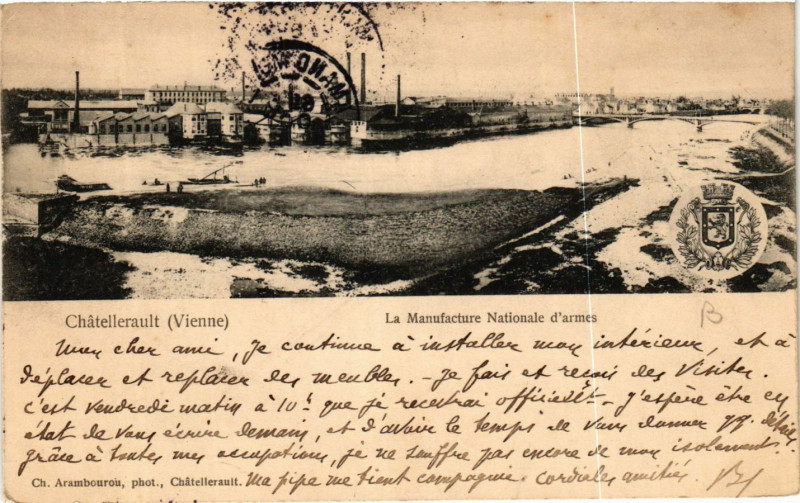 Châtellerault (Vienne)
La Manufacture Nationale d'armes
B
Mon cher ami, je continue à installer mon intérieur, et à
déplacer et replacer des meubles. - Je fais et reçois des visites.
c'est vendredi matin à 10h que je recevrai officiellt - J'espère être en
état de vous écrire demain, et d'avoir le temps de vous donner qq. détails
grâce à toutes mes occupations, je ne souffre pas encore de mon isolement.
Ch. Arambourou, phot., Châtellerault. Ma pipe me tient compagnie. Cordiales amitiés.